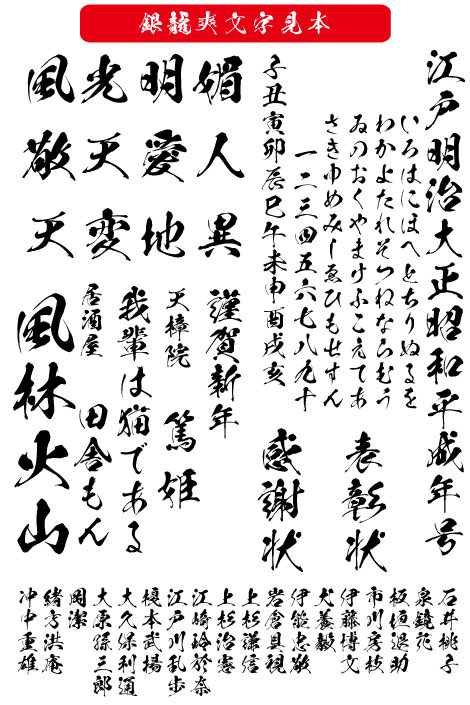 銀龍爽文字見本
江戸明治大正昭和平成年号
いろはにほへとちりぬるを
わかよたれそつねならむう
ゐのおくやまけふこえてあ
さきゆめみしゑひもせすん
一二三四五六七八九十
子丑寅卯辰巳午未申酉戌亥
表彰状
感謝状
媚人異
明愛地
光天変
風敬天
謹賀新年
天樟院 篤姫
我輩は猫である
居酒屋 田舎もん
風林火山
石井桃子
泉鏡花
板垣退助
市川房枝
伊藤博文
犬養毅
伊能忠敬
岩倉具視
上杉謙信
上杉治憲
江崎玲於奈
江戸川乱歩
榎本武揚
大久保利通
大原孫三郎
岡潔
緒方洪庵
沖中重雄